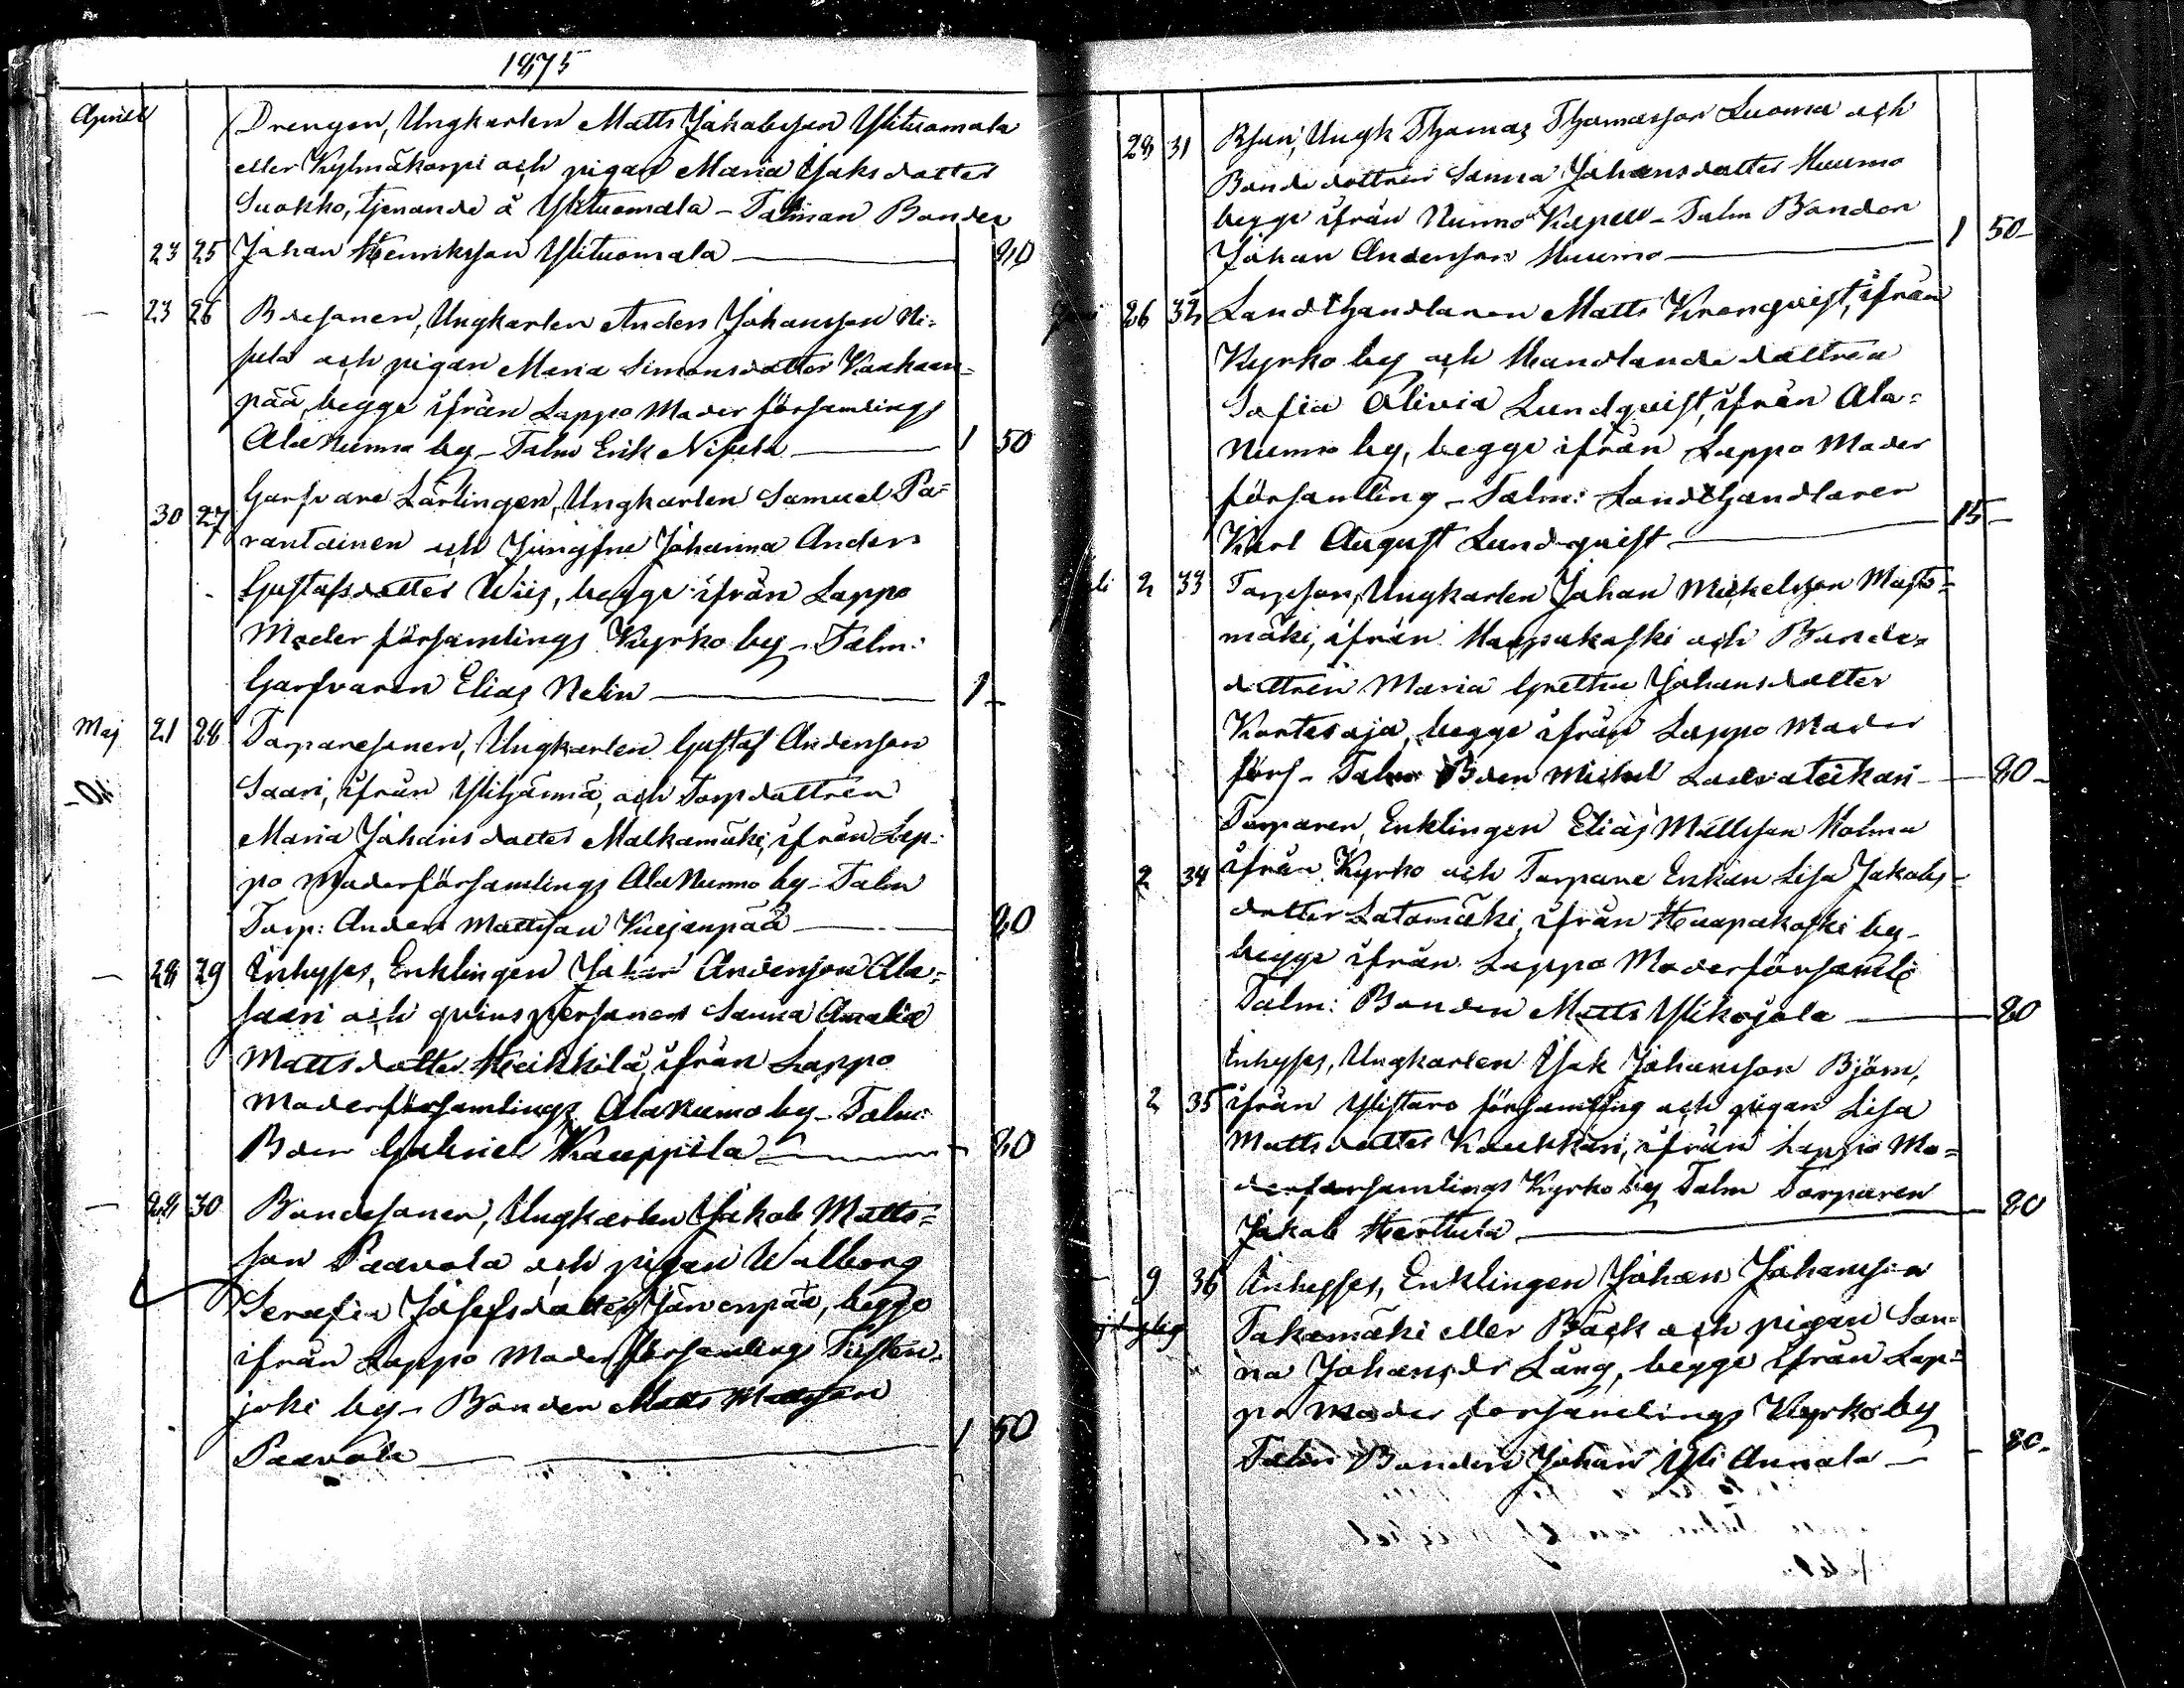 1875
April
Drengen, Ungkarlen Matts Jakobsson Ylituomala
eller Kylmäkorpi och pigan Maria Isaksdotter
Suokko, tjenande å Ylituomala - Talman Bonden
23 25 Johan Henriksson Ylituomala 80
— 23 26 Bdesonen, Ungkarlen Anders Johansson Ni=
sula och pigan Maria Simonsdotter Kankaan=
pää, begge ifrån Lappo Moder församlings
Ala Nurmo by - Talm Erik Nisula 1 50
Garfvare Lärlingen, Ungkarlen Samuel Pa=
30 27 rantainen och Jungfru Johanna Anders
Gustafsdotter Wiis, begge ifrån Lappo
Moder församlings Kyrko by - Talm:
Garfvaren Elias Nelin 1 -
Maj 21 28 Torparesonen, Ungkarlen Gustaf Andersson
Saari, ifrån Ylihärmä, och Torpdottren
Maria Johansdotter Malkamäki, ifrån Lap=
po Moderförsamlings Ala Nurmo by - Talm
Torp: Anders Mattsson Kujanpää 80
— 28 29 Inhyses, Enklingen Johan Andersson Ala=
saari och qvinspersonen Sanna Amalia
Mattsdotter Heikkilä, ifrån Lappo
Moderförsamlings Ala Nurmo by - Talm:
Bden Gabriel Kauppila 80
— 28 30 Bondesonen, Ungkarlen Jakob Matts=
son Paavola och pigan Walborg
Serafia Josefsdotter Järvenpää, begge
ifrån Lappo Moder församlings Tiisten=
joki by - Bonden Matts Mattsson
Paavola 1 50
28 31 Bson, Ungk Thomas Thomasson Luoma och
Bonde dottren Sanna Johansdotter Huumo
begge ifrån Nurmo Kapell - Talm Bonden
Johan Andersson Huumo 1 50 -
Juni 26 32 Landthandlaren Matts Kronqvist, ifrån
Kyrko by och Handlande dottren
Sofia Olivia Lundqvist, ifrån Ala=
Nurmo by, begge ifrån Lappo Moder
församling - Talm: Landthandlaren
Karl August Lundqvist 15 -
li 2 33 Torpson, Ungkarlen Johan Michelsson Masto=
mäki, ifrån Haapakoski och Bonde=
dottren Maria Gretha Johansdotter
Kortesoja, begge ifrån Lappo Moder
förs - Talm Bden Michel 80 -
Torparen, Enklingen Elias Mattsson Holma
2 34 ifrån Kyrko och Torpare Enkan Lisa Jakobs=
dotter Latomäki, ifrån Haapakoski by -
begge ifrån Lappo Moderförsaml:
Talm: Bonden Matts Ylikojola 80
Inhyses, Ungkarlen Isak Johansson Björn,
2 35 ifrån Ylistaro församling och pigan Lisa
Mattsdotter Kaukkari, ifrån Lappo Mo=
derförsamlings Kyrko by Talm Torparen
Jakob Herttula 80
9 36 Inhyses, Enklingen Johan Johansson
Takamäki eller Bäck och pigan San=
na Johansdr Lång, begge ifrån Lap=
po Moder församlings Kyrkoby
Talm Bonden Johan Yli Annala 80 -